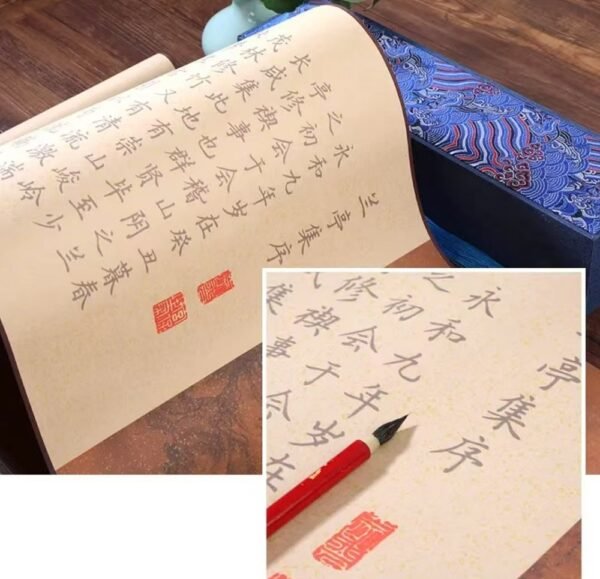 兰亭集序
永和九年岁在癸丑暮春
之初会于会稽山阴之兰
亭修禊事也群贤毕至少
长咸集此地有崇山峻岭
茂林修竹又有清流激湍
亭集序
永和九年岁在
之初会于会
修禊事
集